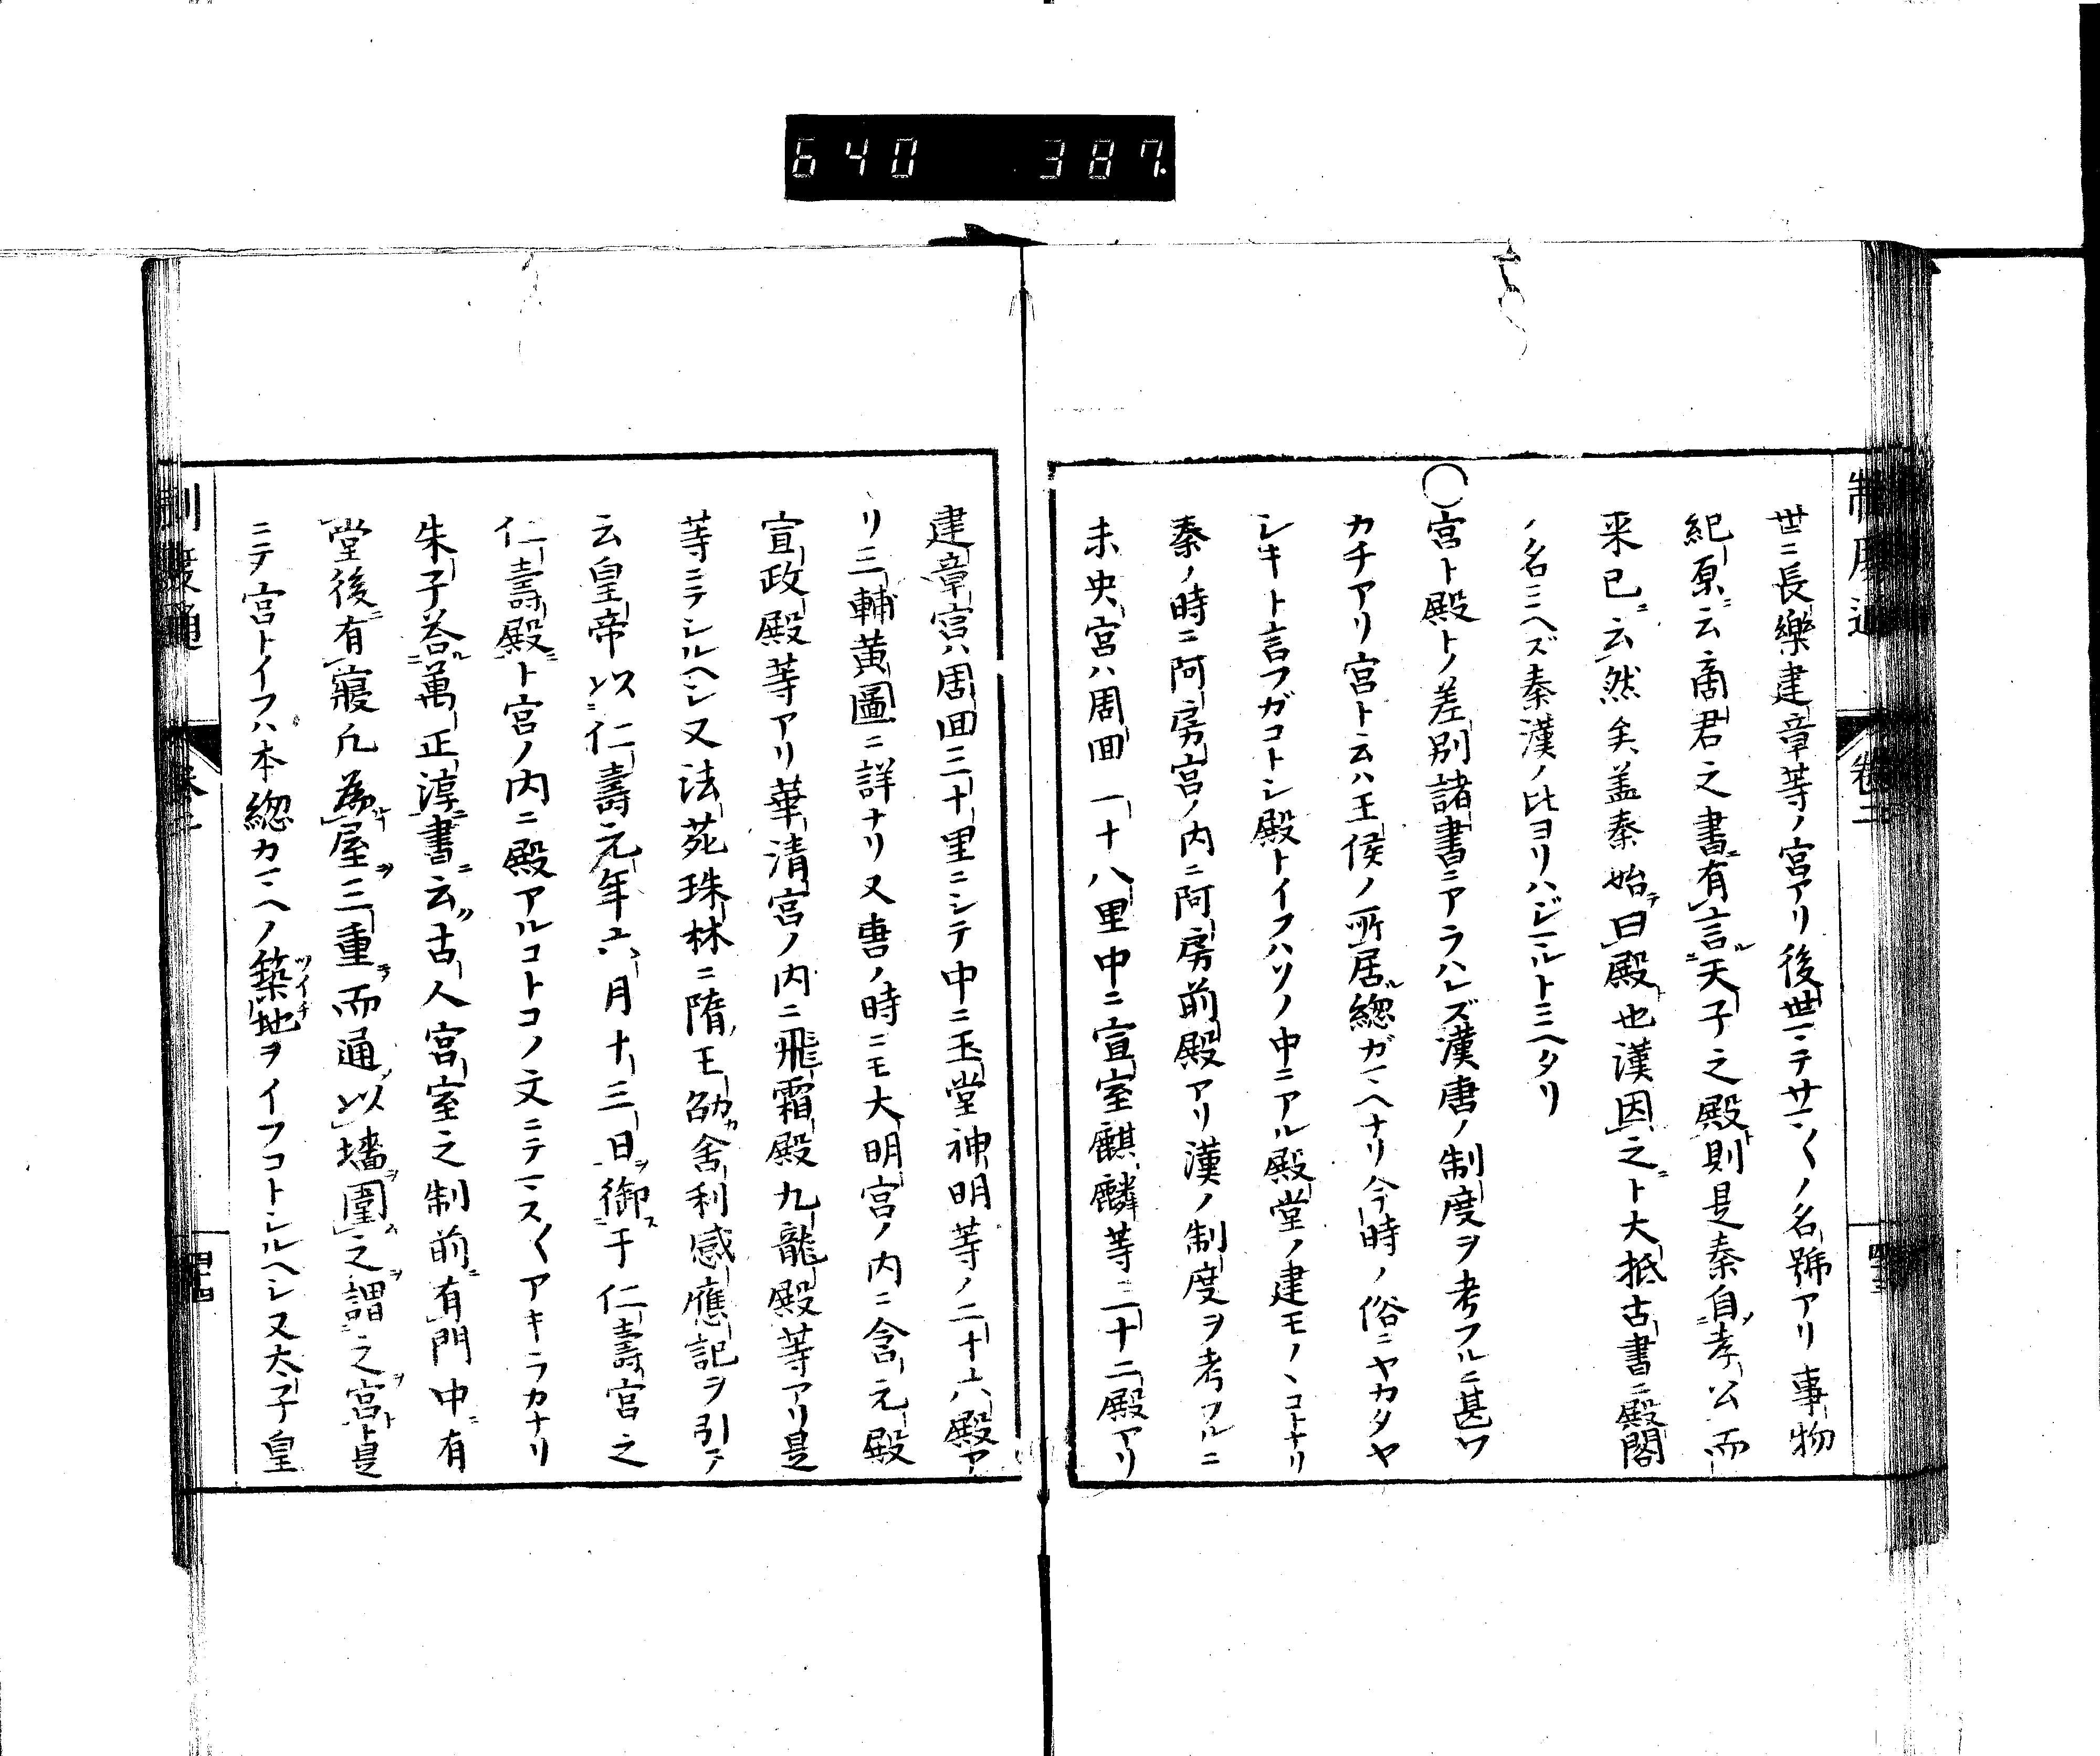 640 387.
制度通 卷二 四十三
世ニ長樂建章等ノ宮アリ後世ニテサマ〱ノ名號アリ事物
紀原ニ云商君之書有言天子之殿則是秦自孝公而
来已ニ云然矣盖秦始曰殿也漢因之ト大抵古書ニ殿閣
ノ名ミヘズ秦漢ノ比ヨリハジマルトミヘタリ
〇宮ト殿トノ差別諸書ニアラハレズ漢唐ノ制度ヲ考フルニ甚ワ
カチアリ宮ト云ハ王侯ノ所居總ガマヘナリ今時ノ俗ニヤカタヤ
シキト言フガコトシ殿トイフハソノ中ニアル殿堂ノ建モノヽコトナリ
秦ノ時ニ阿房宮ノ内ニ阿房前殿アリ漢ノ制度ヲ考フルニ
未央宮ハ周囬一十八里中ニ宣室麒麟等三十二殿アリ
建章宮ハ周囬三十里ニシテ中ニ玉堂神明等ノ二十六殿ア
リ三輔黄圖ニ詳ナリ又唐ノ時ニモ大明宮ノ内ニ含元殿
宣政殿等アリ華清宮ノ内ニ飛霜殿九龍殿等アリ是
等ニテシルヘシ又法苑珠林ニ隋王劭カ舍利感應記ヲ引テ
云皇帝以仁壽元年六月十三日御于仁壽宮之
仁壽殿ト宮ノ内ニ殿アルコトコノ文ニテマス〱アキラカナリ
朱子答萬正淳書ニ云古人宮室之制前有門中有
堂後有寢凡為屋三重而通以墻圍之謂之宮ト是
ニテ宮トイフハ本總カマヘノ築地ヲイフコトシルヘシ又太子皇
ツイチ
制度通 卷二 四十四